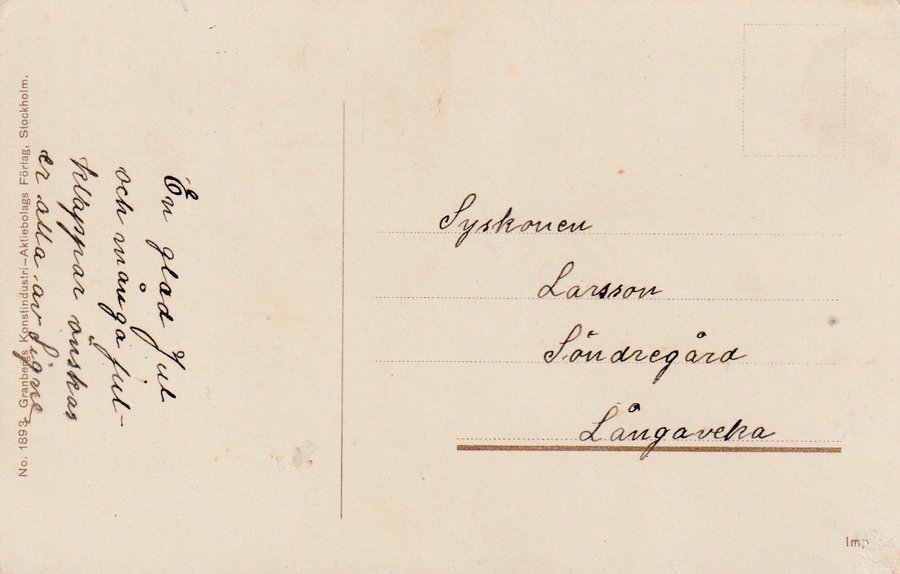 No. 1893. Granbergs Konstindustri-Aktiebolags Förlag, Stockholm.
En glad Jul
och många jul-
klappar önskas
er alla av Signe
Syskonen
Larsson
Söndregård
Långaveka
Im.